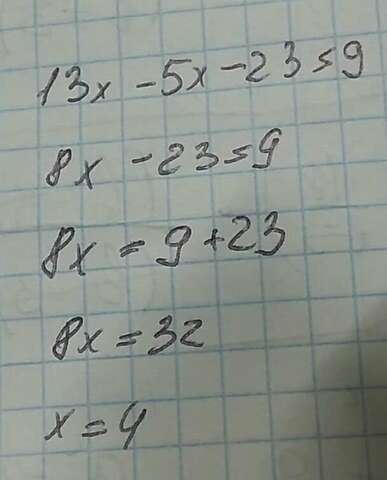 13x - 5x - 23 = 9
8x - 23 = 9
8x = 9 + 23
8x = 32
x = 4